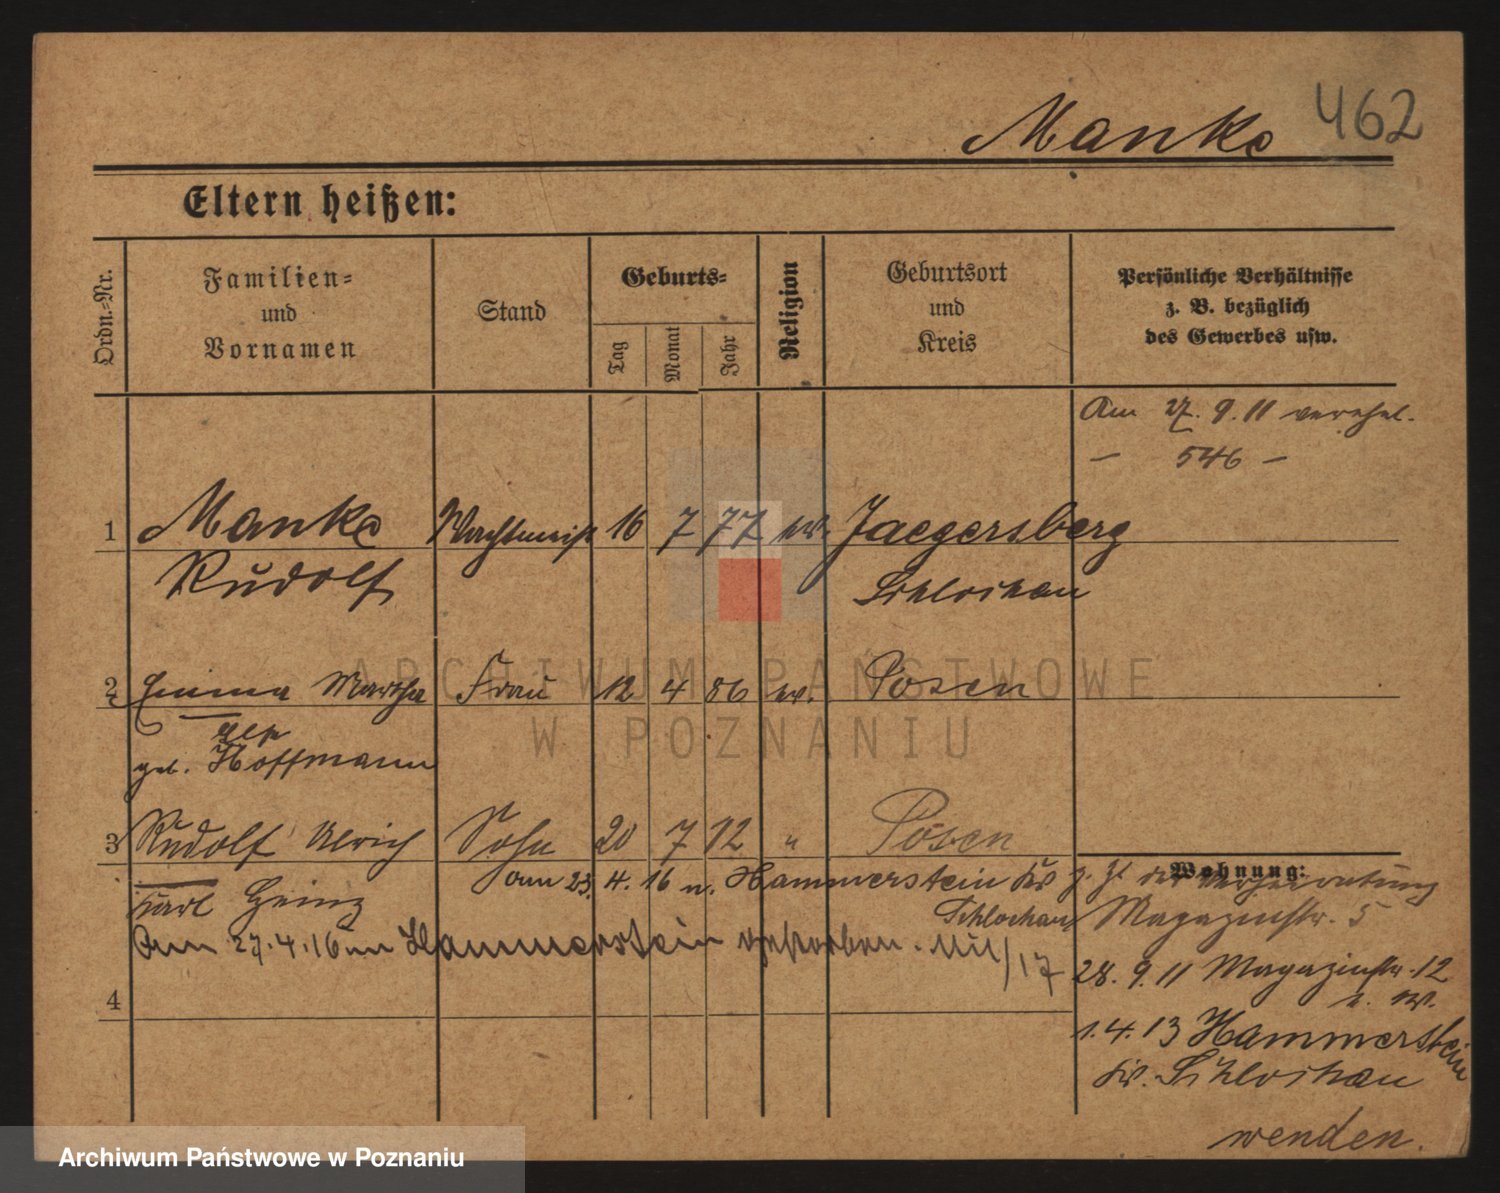 Manke 462
Eltern heißen:
Ordn.-Nr.
Familien-
und
Vornamen
Stand
Geburts-
Tag
Monat
Jahr
Religion
Geburtsort
und
Kreis
Persönliche Verhältnisse
z. B. bezüglich
des Gewerbes usw.
Am 27. 9. 11 verehel.
— 546 —
1 Manke Wachtmeist 16 7 77 ev. Jaegersberg
Rudolf Schlochau
2 Emma Martha Frau 12 4 86 ev. Posen
geb. Hoffmann
3 Rudolf Ulrich Sohn 20 7 12 " Posen
Karl Heinz
am 23. 4. 16 n. Hammerstein Kr
Schlochau
Am 27. 4. 16 in Hammerstein gestorben.
17
4
Wohnung:
z. Zt der Verheiratung
Magazinstr. 5
28. 9. 11 Magazinstr. 12
1. 4. 13 Hammerstein
Kr. Schlochau
wenden.
ARCHIWUM PAŃSTWOWE
W POZNANIU
Archiwum Państwowe w Poznaniu